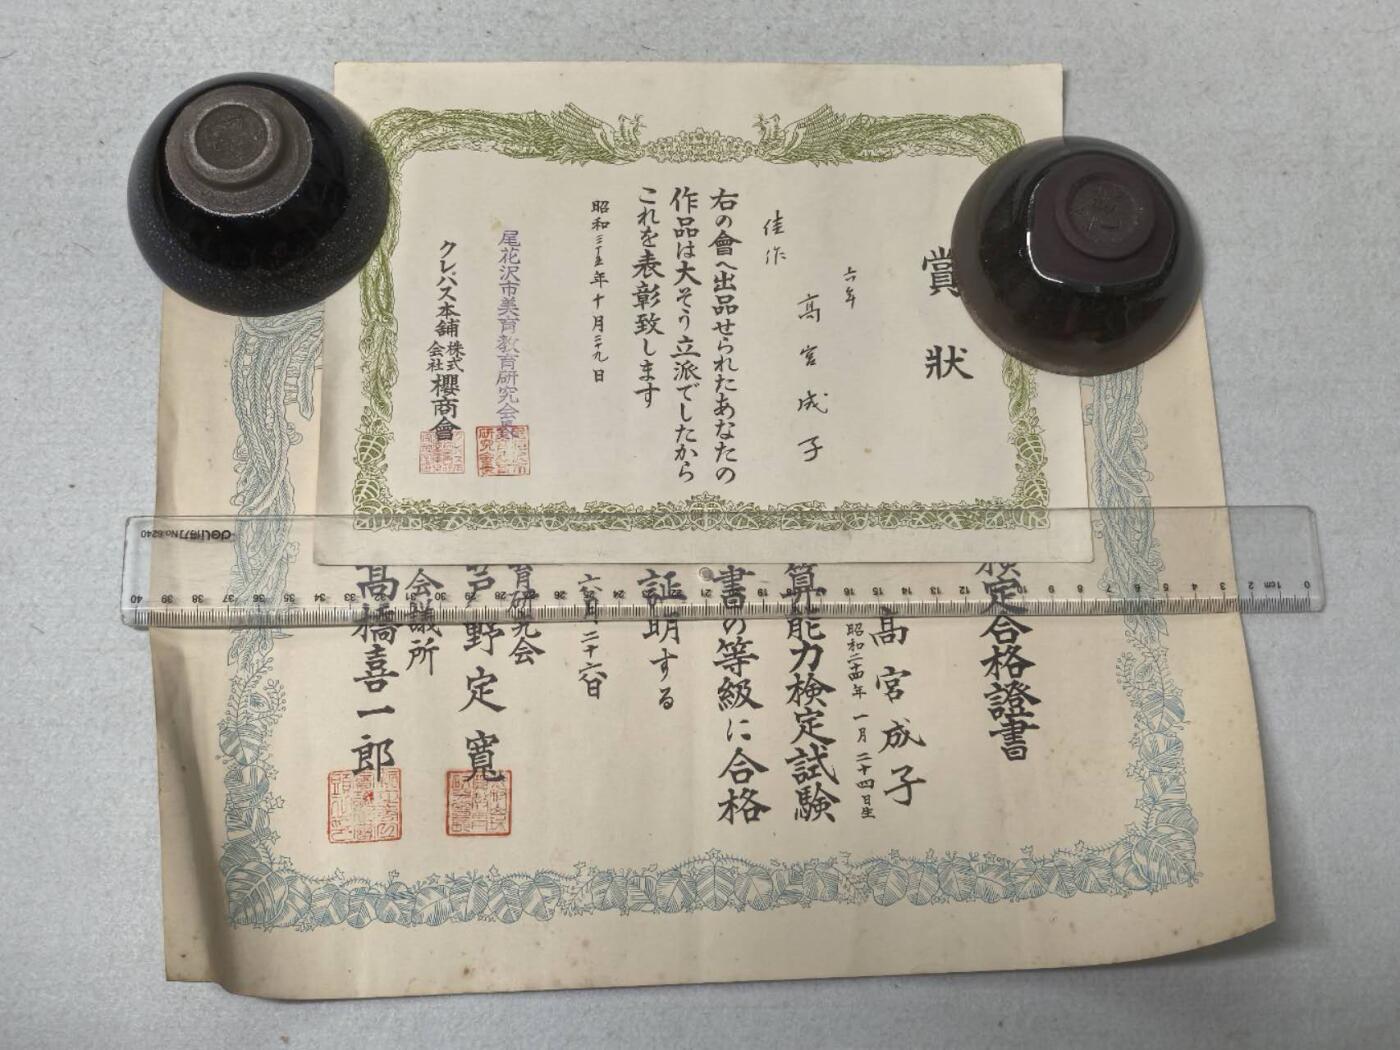 賞狀
六年
高宮成子
佳作
右の會へ出品せられたあなたの
作品は大そう立派でしたから
これを表彰致します
昭和三十五年十月二十九日
尾花沢市美育教育研究会長
クレパス本舗株式会社櫻商會
検定合格證書
高宮成子
昭和二十四年一月二十四日生
算能力検定試験
書の等級に合格
証明する
六月二十六日
育研究会
野定寬
会議所
高橋喜一郎
deli得力 No.6240
0 1cm 2 3 4 5 6 7 8 9 10 11 12 13 14 15 16 17 18 19 20 21 22 23 24 25 26 27 28 29 30 31 32 33 34 35 36 37 38 39 40